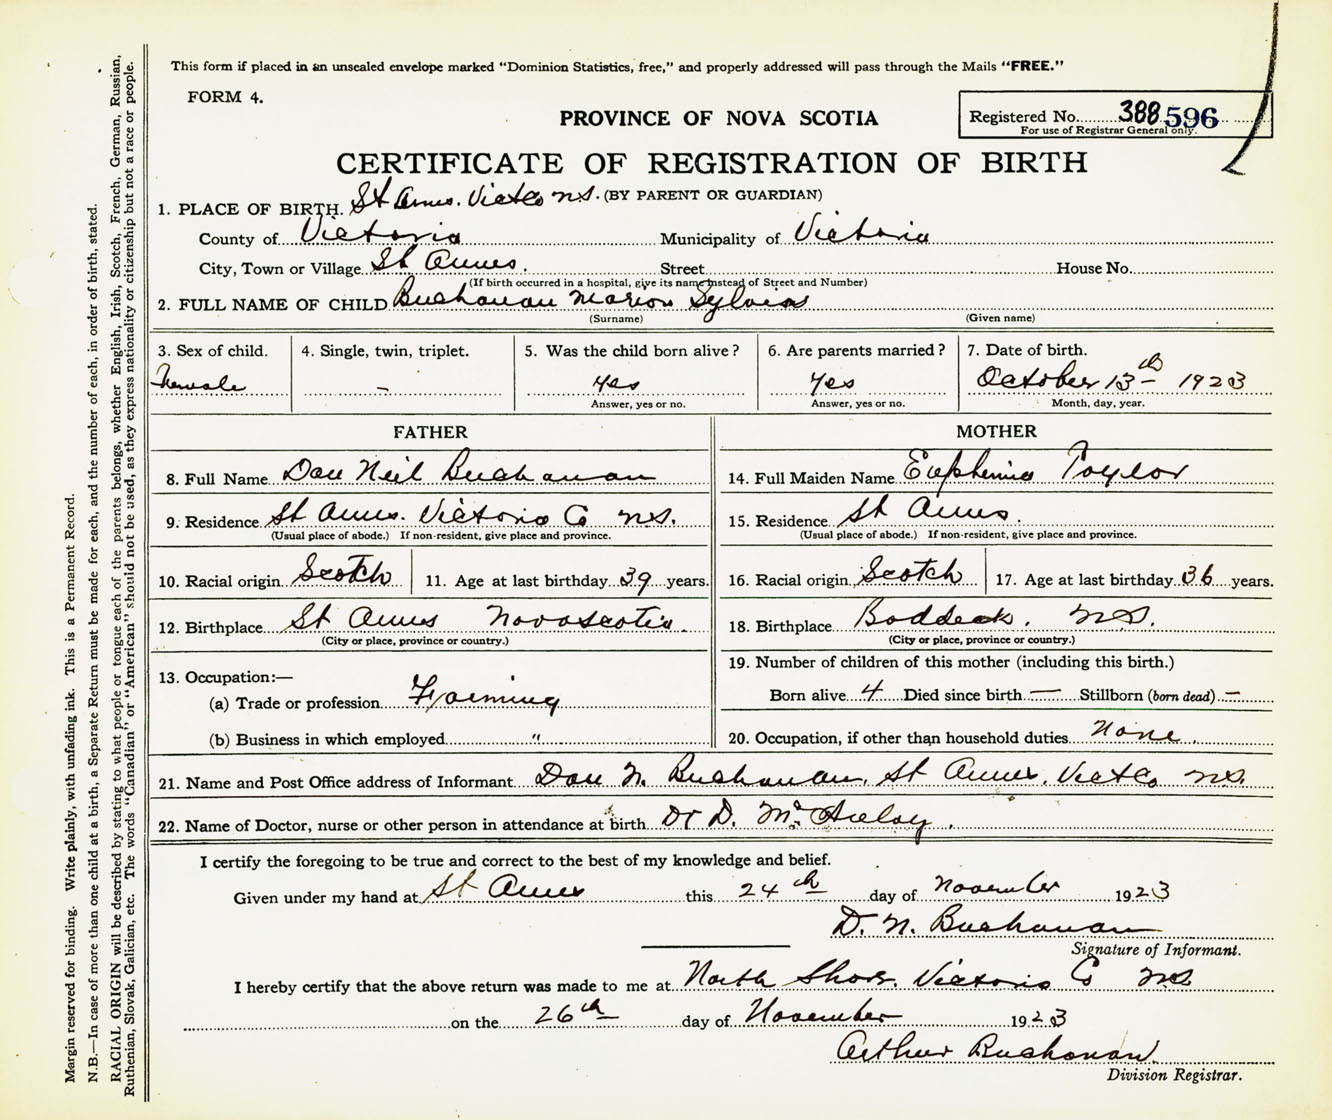 This form if placed in an unsealed envelope marked "Dominion Statistics, free," and properly addressed will pass through the Mails "FREE."
FORM 4.
PROVINCE OF NOVA SCOTIA
Registered No. 388 596
For use of Registrar General only.
CERTIFICATE OF REGISTRATION OF BIRTH
(BY PARENT OR GUARDIAN)
1. PLACE OF BIRTH. St Anns. Vict Co N.S.
County of Victoria Municipality of Victoria
City, Town or Village St Anns. Street House No.
(If birth occurred in a hospital, give its name instead of Street and Number)
2. FULL NAME OF CHILD Buchanan Marion Sylvia
(Surname) (Given name)
3. Sex of child. 4. Single, twin, triplet. 5. Was the child born alive? 6. Are parents married? 7. Date of birth.
Female – Yes Yes October 13th 1923
Answer, yes or no. Answer, yes or no. Month, day, year.
FATHER
8. Full Name Dan Neil Buchanan
9. Residence St Anns. Victoria Co N.S.
(Usual place of abode.) If non-resident, give place and province.
10. Racial origin Scotch 11. Age at last birthday 39 years.
12. Birthplace St Anns Nova Scotia
(City or place, province or country.)
13. Occupation:—
(a) Trade or profession Farming
(b) Business in which employed "
MOTHER
14. Full Maiden Name Euphemia Taylor
15. Residence St Anns.
(Usual place of abode.) If non-resident, give place and province.
16. Racial origin Scotch 17. Age at last birthday 36 years.
18. Birthplace Baddeck. N.S.
(City or place, province or country.)
19. Number of children of this mother (including this birth.)
Born alive 4 Died since birth — Stillborn (born dead) —
20. Occupation, if other than household duties None.
21. Name and Post Office address of Informant Dan N. Buchanan, St Anns, Vict Co N.S.
22. Name of Doctor, nurse or other person in attendance at birth Dr D.
I certify the foregoing to be true and correct to the best of my knowledge and belief.
Given under my hand at St Anns this 24th day of November 1923
D. N. Buchanan
Signature of Informant.
I hereby certify that the above return was made to me at North Shore, Victoria Co N.S
on the 26th day of November 1923
Arthur Buchanan
Division Registrar.
Margin reserved for binding. Write plainly, with unfading ink. This is a Permanent Record.
N.B.—In case of more than one child at a birth, a Separate Return must be made for each, and the number of each, in order of birth, stated.
RACIAL ORIGIN will be described by stating to what people or tongue each of the parents belongs, whether English, Irish, Scotch, French, German, Russian,
Ruthenian, Slovak, Galician, etc. The words "Canadian" or "American" should not be used, as they express nationality or citizenship but not a race or people.